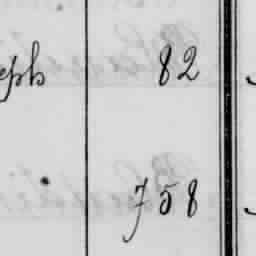 eph 82
758